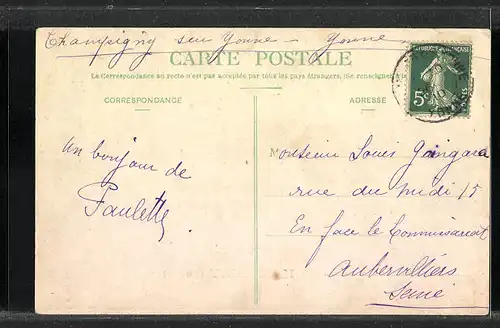 Champigny sur Yonne — Yonne
CARTE POSTALE
La Correspondance au recto n'est pas acceptée par tous les pays étrangers, (Se renseigner
CORRESPONDANCE
ADRESSE
RÉPUBLIQUE FRANÇAISE
5c
POSTES
un bonjour de
Paulette
Monsieur Louis
rue du midi 15
En face le Commissariat
Aubervilliers
Seine